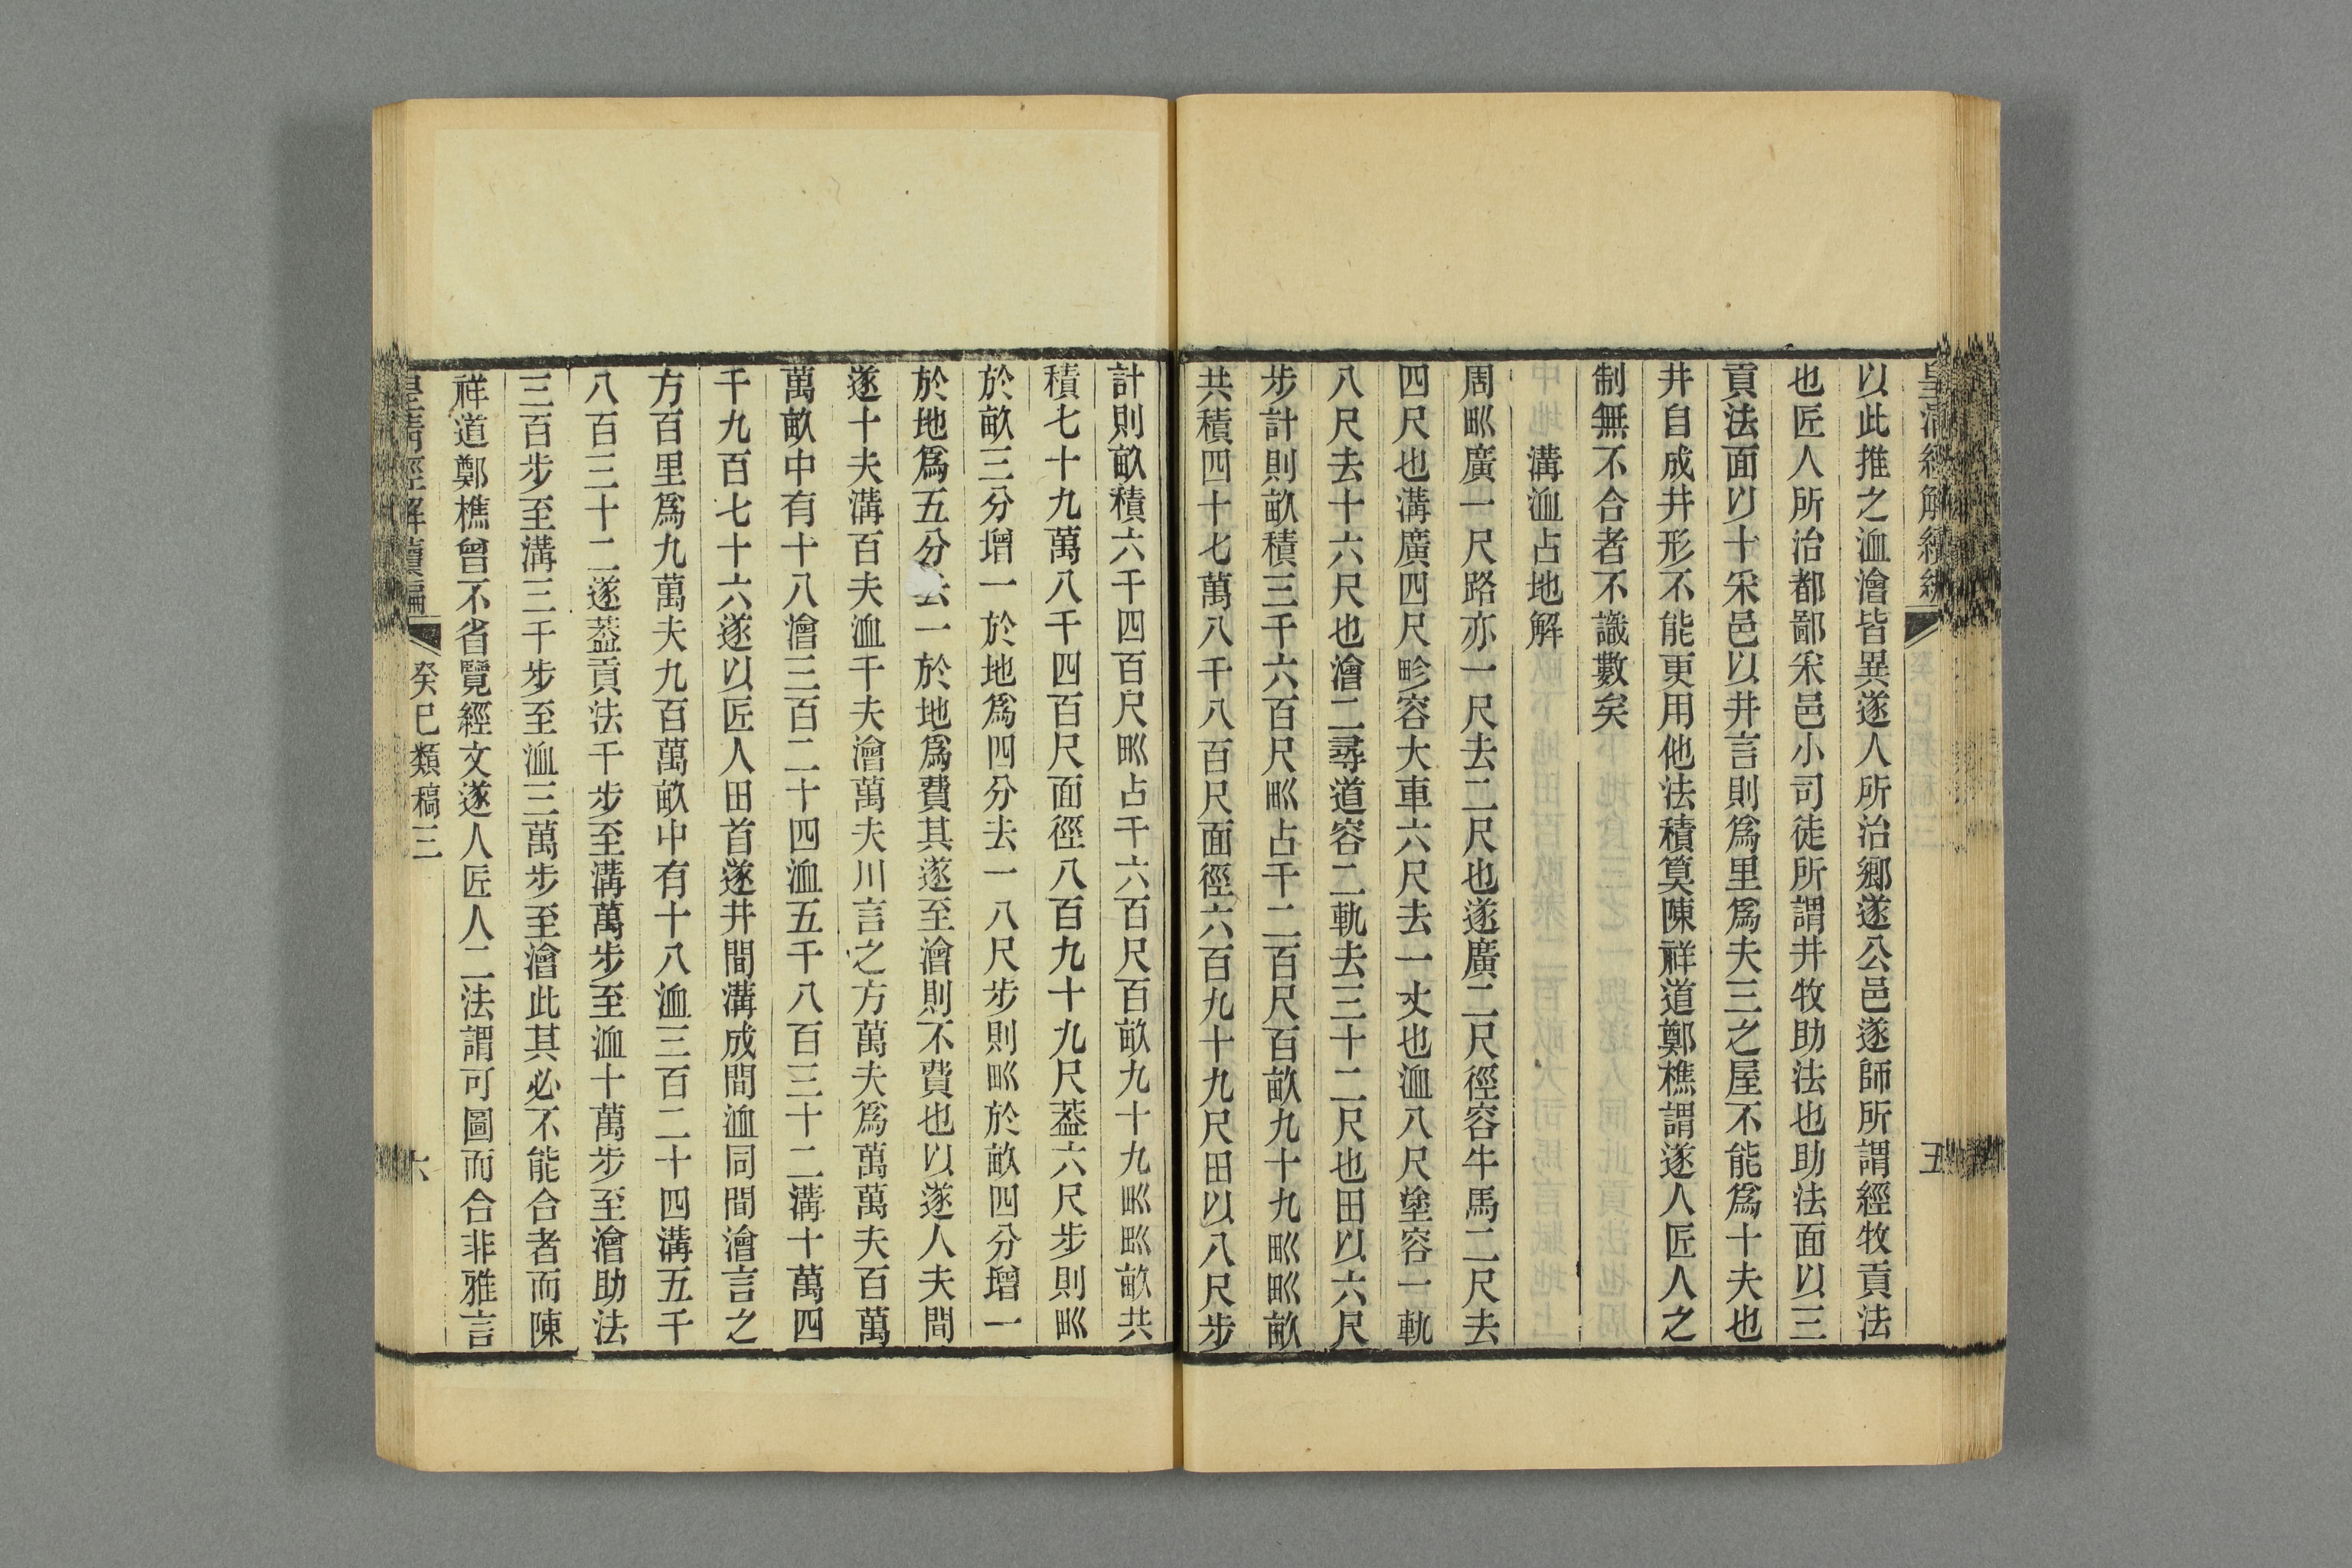 以此推之洫澮皆異遂人所治鄉遂公邑遂師所謂經牧貢法
也匠人所治都鄙采邑小司徒所謂井牧助法也助法面以三
貢法面以十采邑以井言則爲里爲夫三之屋不能爲十夫也
井自成井形不能更用他法積算陳祥道鄭樵謂遂人匠人之
制無不合者不識數矣
溝洫占地解
周甽廣一尺路亦一尺去二尺也遂廣二尺徑容牛馬二尺去
四尺也溝廣四尺畛容大車六尺去一丈也洫八尺塗容一軌
八尺去十六尺也澮二尋道容二軌去三十二尺也田以六尺
步計則畝積三千六百尺甽占千二百尺百畝九十九甽甽畝
共積四十七萬八千八百尺面徑六百九十九尺田以八尺步
計則畝積六千四百尺甽占千六百尺百畝九十九甽甽畝共
積七十九萬八千四百尺面徑八百九十九尺葢六尺步則甽
於畝三分增一於地爲四分去一八尺步則甽於畝四分增一
於地爲五分去一於地爲費其遂至澮則不費也以遂人夫間
遂十夫溝百夫洫千夫澮萬夫川言之方萬夫爲萬萬夫百萬
萬畝中有十八澮三百二十四洫五千八百三十二溝十萬四
千九百七十六遂以匠人田首遂井間溝成間洫同間澮言之
方百里爲九萬夫九百萬畝中有十八洫三百二十四溝五千
八百三十二遂葢貢法千步至溝萬步至洫十萬步至澮助法
三百步至溝三千步至洫三萬步至澮此其必不能合者而陳
祥道鄭樵曾不省覽經文遂人匠人二法謂可圖而合非雅言
皇清經解續編
癸巳類稿三
六